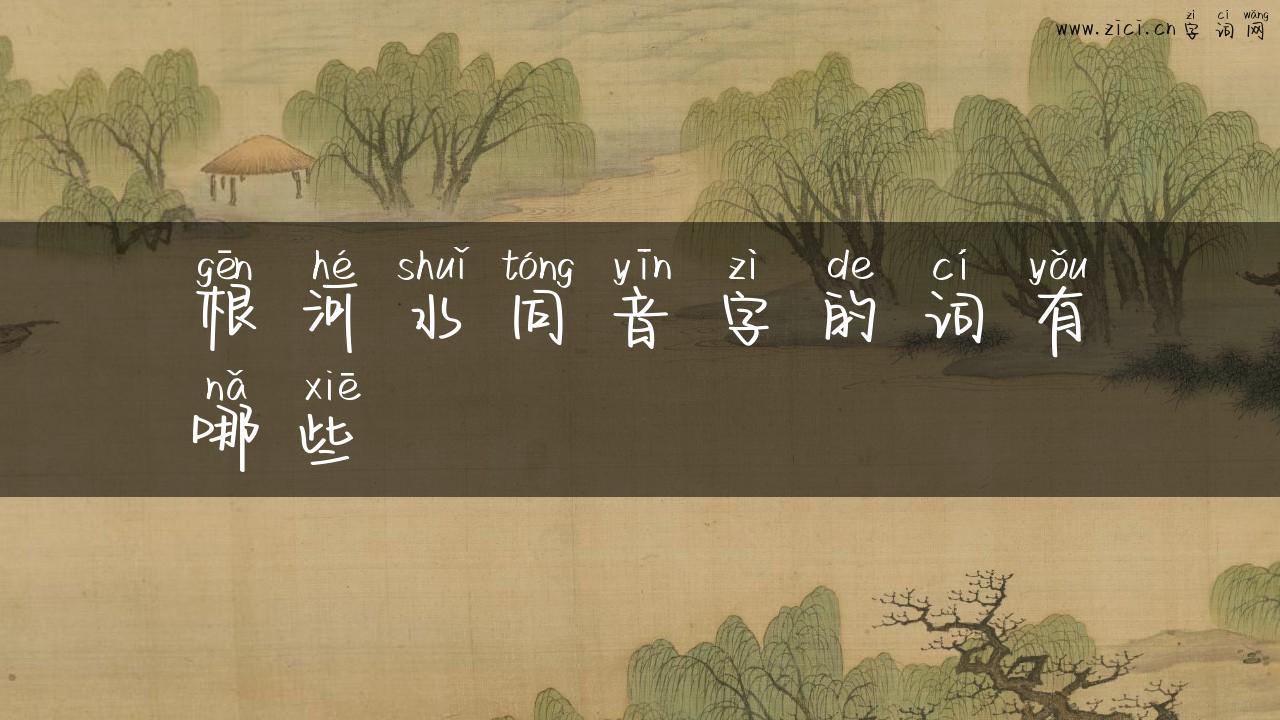 zì cí wǎng
www.zìcí.cn 字 词 网
gēn hé shuǐ tóng yīn zì de cí yǒu
根 河 水 同 音 字 的 词 有
nǎ xiē
哪 些